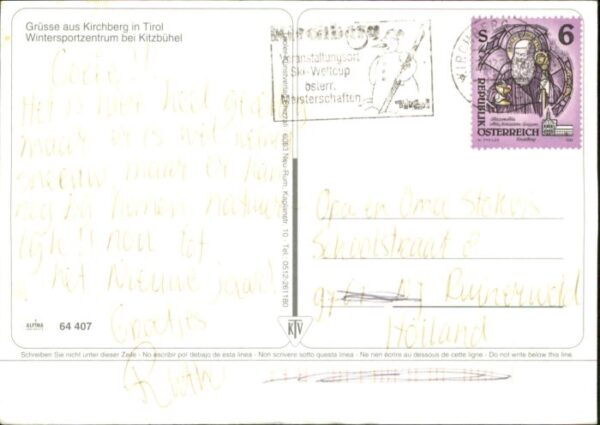 Grüsse aus Kirchberg in Tirol
Wintersportzentrum bei Kitzbühel
Goeie!!
Het is hier heel
maar er is wel
sneeuw maar er kan
nog bij komen natuur
lijk!! nou tot
het nieuwe jaar!
Groetjes
Ruth
ALPINA 64 407
6063 Neu-Rum, Kaplanstr. 10 Tel. 0512-261180
KTV
Kirchberg
Veranstaltungsort
Ski-Weltcup
österr.
Meisterschaften
S 6
REPUBLIK
ÖSTERREICH
Opa en Oma
Schoolstraat 8
Ruinerwold
Holland
Schreiben Sie nicht unter dieser Zeile - No escribir por debajo de esta linea - Non scrivere sotto questa linea - Ne rien écrire au dessous de cette ligne - Do not write below this line